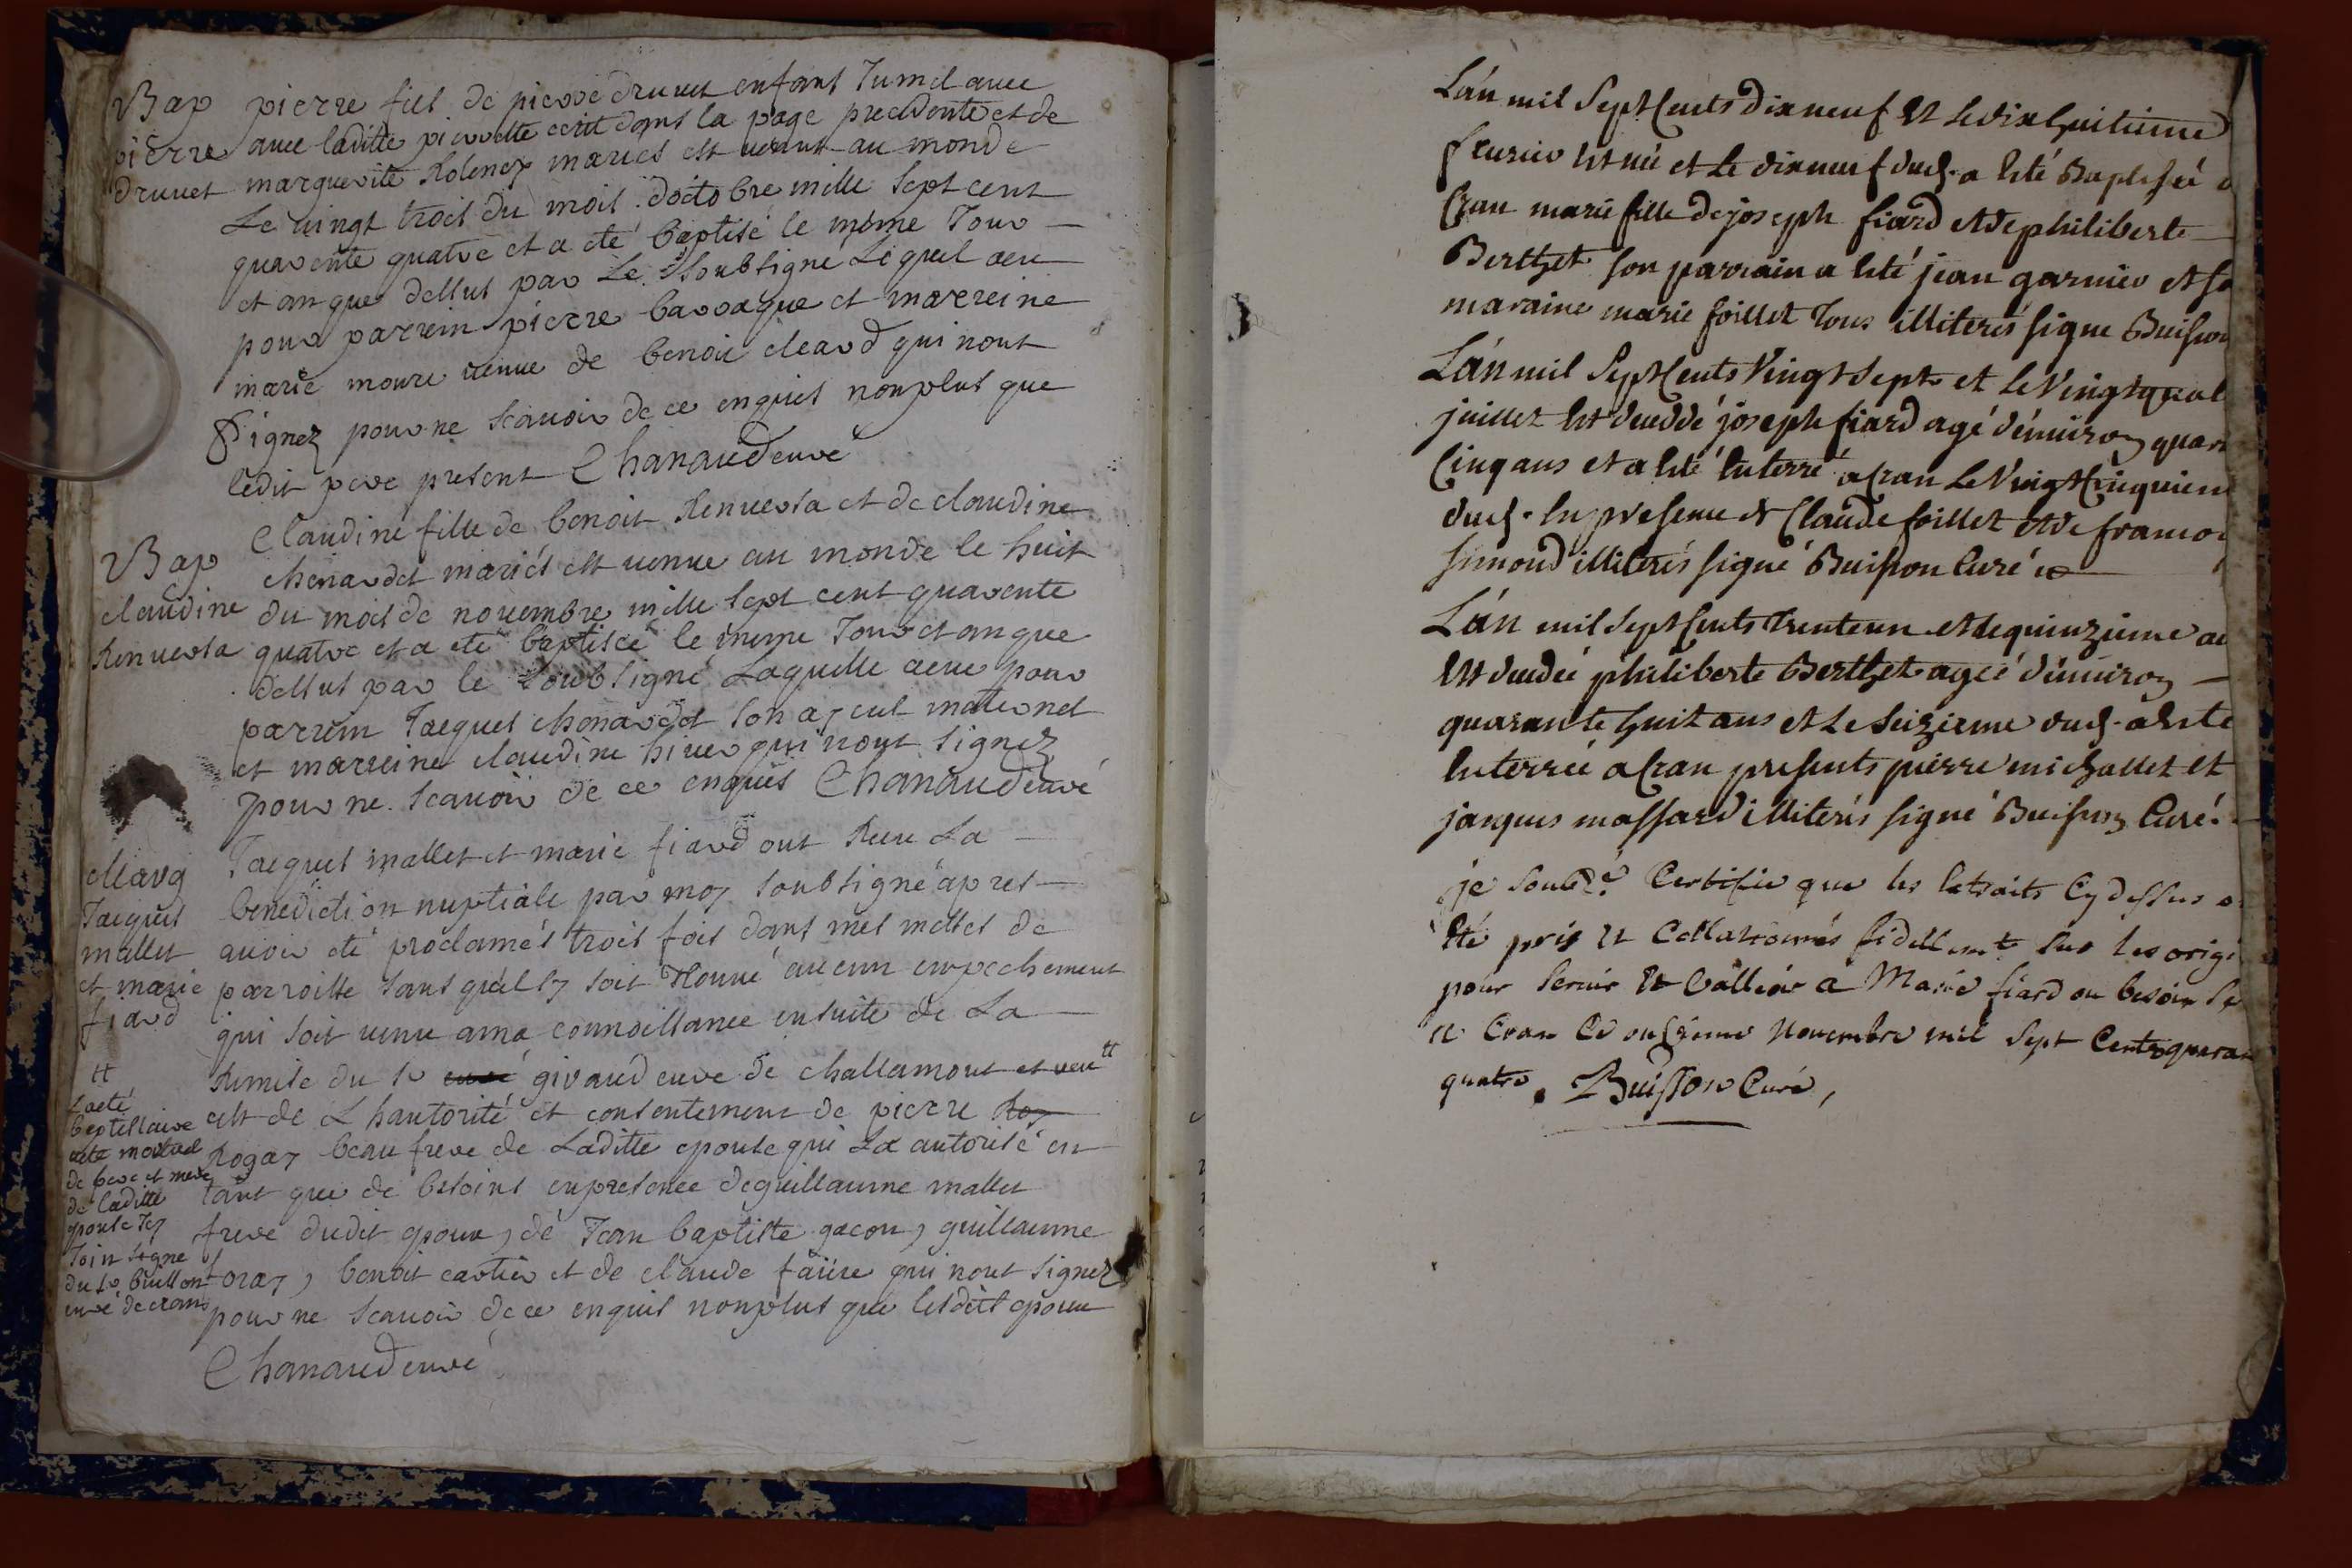 Bap
pierre
druvet
pierre fils de pierre druvet enfant Jumel avec
avec laditte pierrette ecrit dans la page precedente et de
marguerite Rolency mariés est venut au monde
Le vingt trois du mois doctobre mille sept cent
quarente quatre et a eté baptisé le même Jour —
et an que dessus par Le soubsigne Lequel a eu
pour parrein pierre barraque et marreine
marie moure veuve de benoit cleard qui nont
signez pour ne scavoir de ce enquis nonplus que
ledit pere present Chanaud curé
Bap
claudine
Renversa
Claudine fille de benoit Renversa et de claudine
chenardet mariés est venue au monde le huit
du mois de novembre mille sept cent quarente
quatre et a eté baptisée le meme Jour et an que
dessus par le soubsigné Laquelle a eue pour
parrein Jacques chenardet son ayeul maternel
et marreine claudine hiver qui nont signez
pour ne scavoir de ce enquis Chanaud curé
Marg
Jacques
mallet
et marie
fiard
Jacques mallet et marie fiard ont Receu La —
benediction nuptiale par moy soubsigné apres —
avoir eté proclamés trois fois dans mes messes de
parroisse sans quil sy soit trouvé aucun empechement
qui soit venu a ma connoissance ensuite de La —
Remise du sr curé giraud curé de challamont et veu tt
est de L hautorité et consentement de pierre Roy
Rogay beau frere de Laditte epouse qui La autorisé en
tant que de besoins en presence de guillaume mallet
frere dudit epoux, de Jean baptiste gacon, guillaume
foray, benoit cartier et de claude faure qui nont signez
pour ne scavoir de ce enquis nonplus que lesdits epoux
Chanaud curé
tt
Lacte
baptistaire
acte mortuel
de pere et mere
de laditte
epouse Jcy
Joint signe
du sr buisson
curé de crans
Lán mil Sept Cents dix neuf Et Le dix huitieme
fevrier Est né et Le dix neuf dud. a Eté Baptisée a
Cran marie fille de joseph fiard et de philiberte —
Berthet son parrain a Eté jean garnier et sa
maraine marie foillet Tous illiterés signe Buisson
Lán mil Sept Cents Vingt Sept et Le Vingt quat
juillet Est décédé joseph fiard agé d'énviron quar
Cinq ans et a Eté Enterré a Cran Le Vingt Cinquiem
dud. En presence de Claude foillet et de francoi
simond illiterés signé Buisson Curé
Lán mil Sept Cents Trente un et le quinzieme ao
Est décédée philiberte Berthet agée d'énviron —
quarante huit ans et Le Seizieme dud. a Eté
Enterrée a Cran presents pierre michallet et
janques massard illiterés signé Buisson Curé.
je soubs.né Certifie que les Extraits Cy dessus o
Eté pris Et Collationnés fidellemt sur les origi
pour servir Et Valloir a Marie fiard ou besoin se
a Cran Ce onzieme Novembre mil sept Cents quaran
quatre. Buisson Curé,